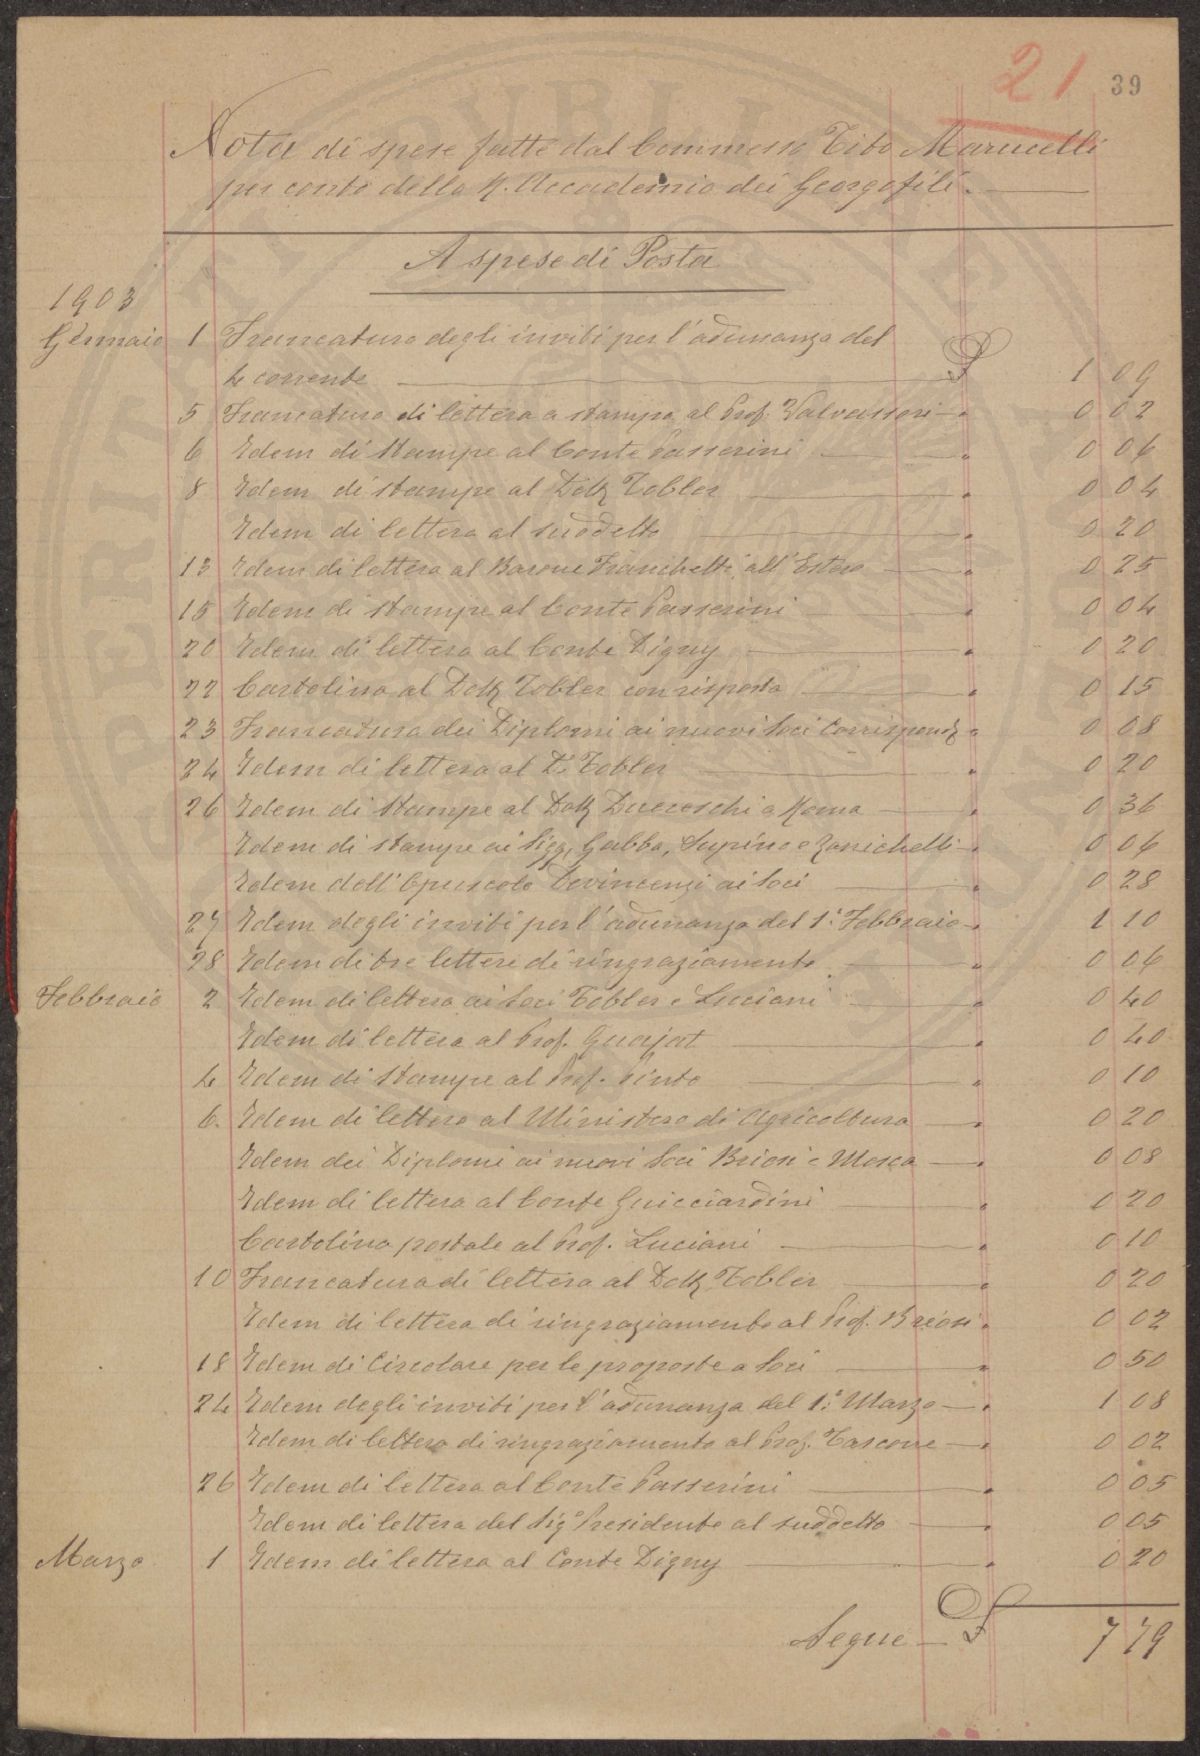 21 39
Nota di spese fatte dal Commesso Tito Marucelli
per conto della R. Accademia dei Georgofili.
A spese di Posta
1903
Gennaio 1 Francatura degli inviti per l'adunanza del
4 corrente £ 1 09
5 Francatura di lettera a stampa al Prof. Valvassori " 0 02
6 Idem di stampe al Conte Passerini " 0 06
8 Idem di stampe al Dott. Tobler " 0 04
Idem di lettera al suddetto " 0 20
13 Idem di lettera al Barone Franchetti all'Estero " 0 25
15 Idem di stampe al Conte Passerini " 0 04
20 Idem di lettera al Conte Digny " 0 20
22 Cartolina al Dott. Tobler con risposta " 0 15
23 Francatura dei Diplomi ai nuovi Soci Corrispond. " 0 08
24 Idem di lettera al D. Tobler " 0 20
26 Idem di stampe al Dott. a Roma " 0 36
Idem di stampe ai Sigg. Gabba, Supino e Zanichelli " 0 06
Idem dell'Opuscolo Devincenzi ai Soci " 0 28
27 Idem degli inviti per l'adunanza del 1° Febbraio " 1 10
28 Idem di tre lettere di ringraziamento " 0 06
Febbraio 2 Idem di lettera ai Soci Tobler e Luciani " 0 40
Idem di lettera al Prof. Guajat " 0 40
4 Idem di stampe al Prof. Pinto " 0 10
6. Idem di lettera al Ministero di Agricoltura " 0 20
Idem dei Diplomi ai nuovi Soci Briosi e Mosca " 0 08
Idem di lettera al Conte Guicciardini " 0 20
Cartolina postale al Prof. Luciani " 0 10
10 Francatura di lettera al Dott. Tobler " 0 20
Idem di lettera di ringraziamento al Prof. Briosi " 0 02
18 Idem di Circolare per le proposte a Soci " 0 50
24 Idem degli inviti per l'adunanza del 1° Marzo " 1 08
Idem di lettera di ringraziamento al Prof. Tascone " 0 02
26 Idem di lettera al Conte Passerini " 0 05
Idem di lettera del Sig. Presidente al suddetto " 0 05
Marzo 1 Idem di lettera al Conte Digny " 0 20
Segue £ 7 79